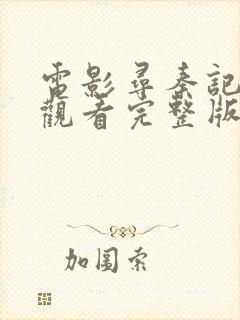 電影尋秦記
觀看完整版
加圖索